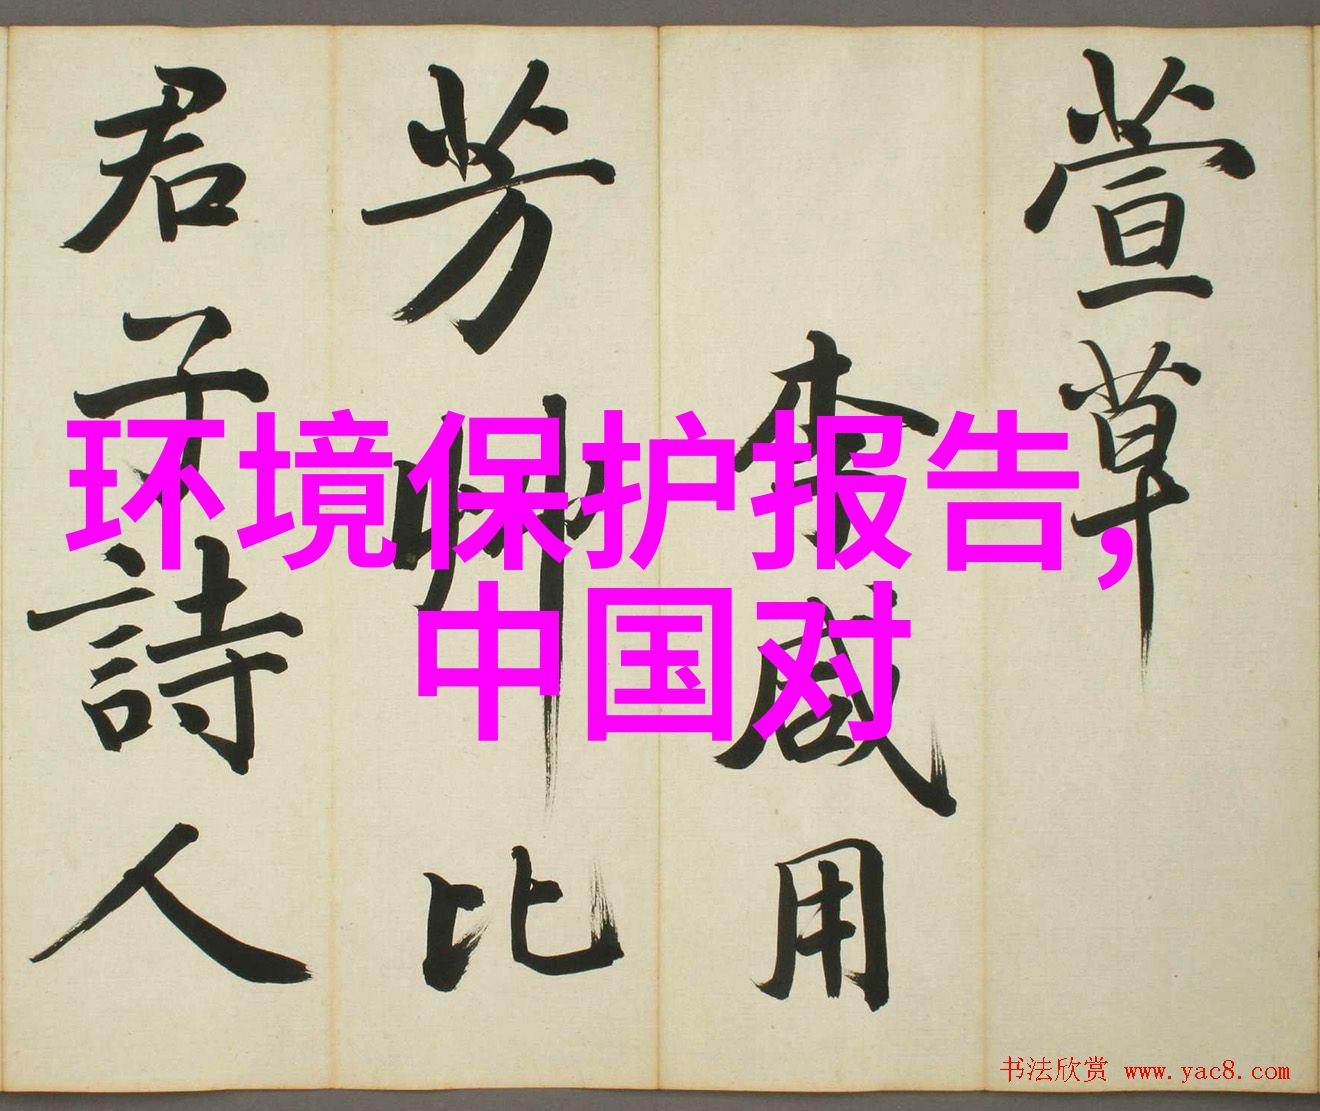 萱草
李咸用
芳草比
君子詩人
环境保护报告，
中国对
书法欣赏 www.yac8.com